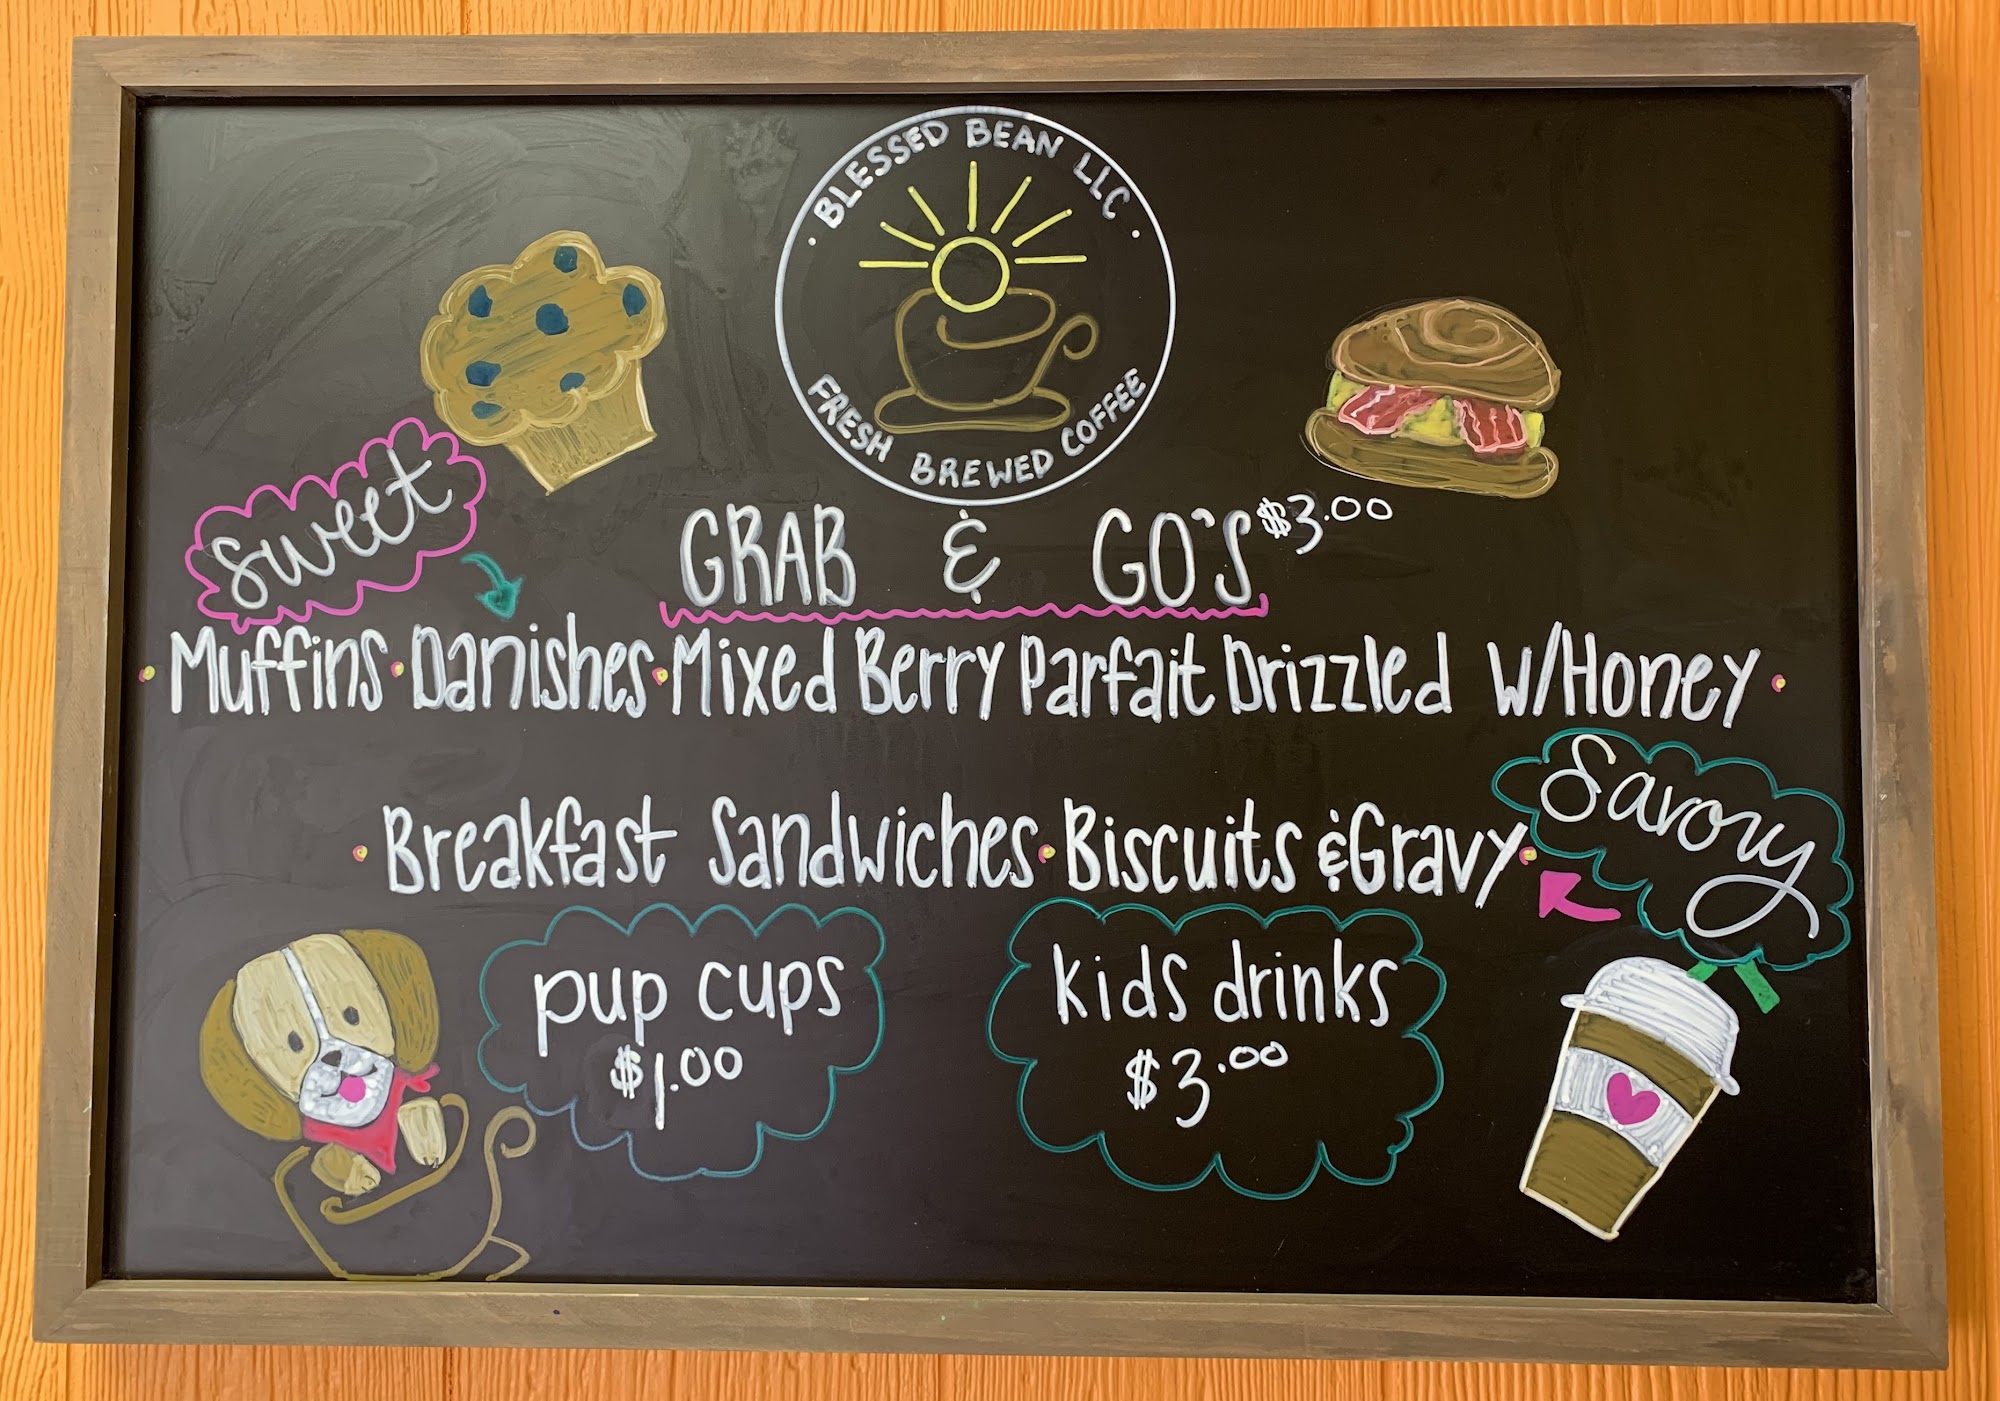 BLESSED BEAN LLC
FRESH BREWED COFFEE
GRAB & GO'S $3.00
Sweet
Muffins • Danishes • Mixed Berry Parfait Drizzled W/Honey •
Savory
• Breakfast Sandwiches • Biscuits & Gravy •
pup cups
$1.00
kids drinks
$3.00